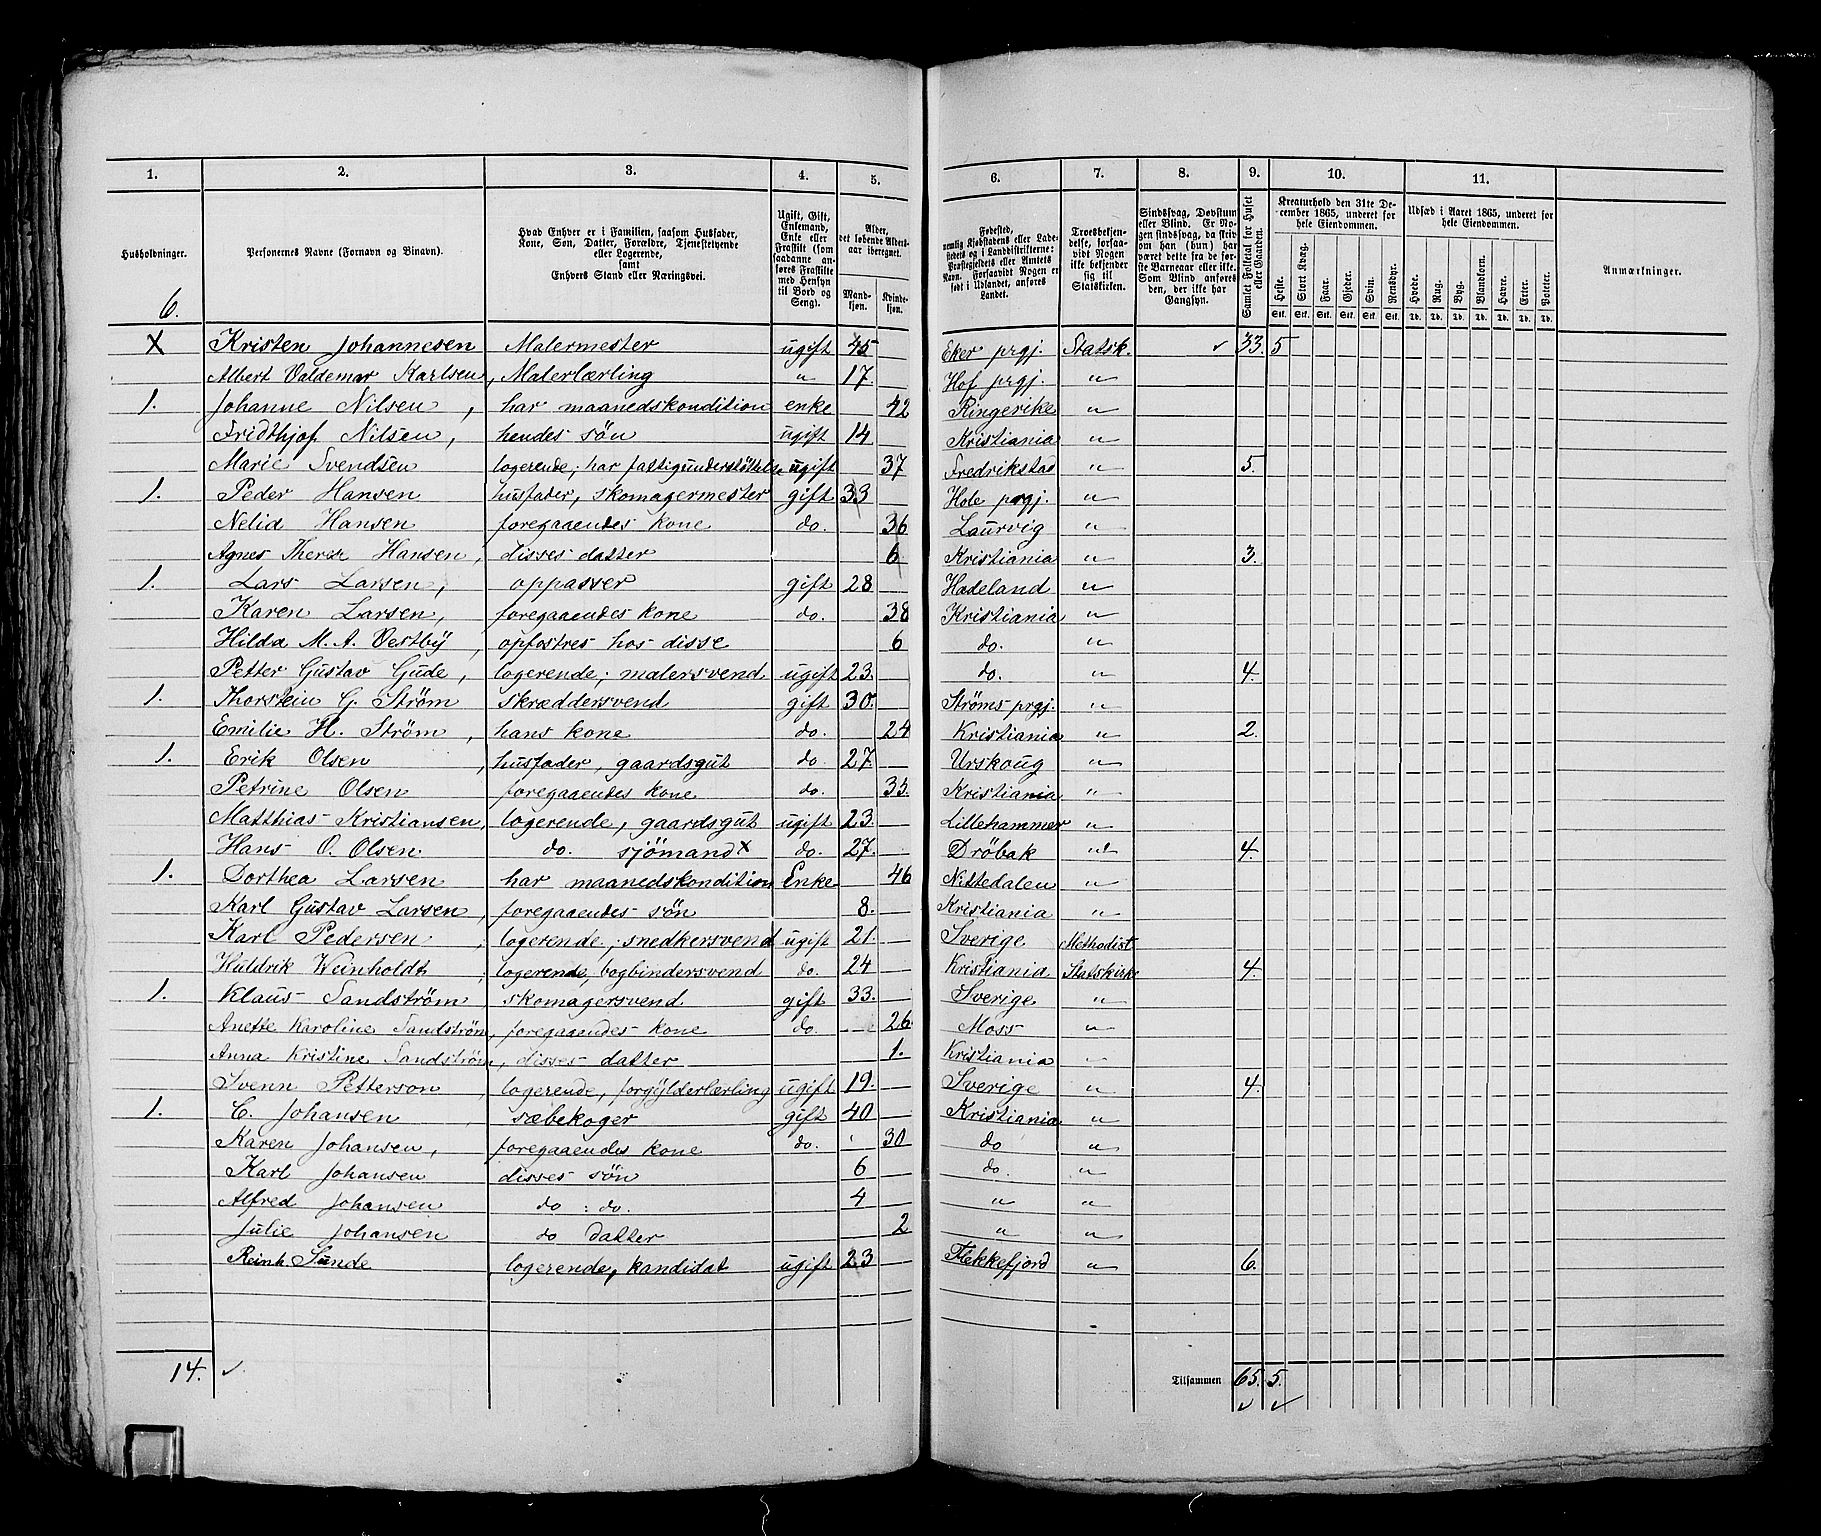 1. 2. 3. 4. 5. 6. 7. 8. 9. 10. 11.
Husholdninger. Personernes Navne (Fornavn og Binavn). Hvad Enhver er i Familien, saasom Husfader, Kone, Søn, Datter, Forældre, Tjenestetyende eller Logerende, samt Enhvers Stand eller Næringsvei. Ugift, Gift, Enkemand, Enke eller Fraskilt (som saadanne anføres Fraskilte med Hensyn til Bord og Seng). Alder, det løbende Aldersaar iberegnet. Mandkjøn. Kvindekjøn. Fødested, nemlig Kjøbstadens eller Ladestedets og i Landdistrikterne: Præstegjeldets eller Amtets Navn. Forsaavidt Nogen er født i Udlandet, anføres Landet. Troesbekjendelse, forsaavidt Nogen ikke bekjender sig til Statskirken. Sindssvag, Døvstum eller Blind. Er Nogen sindssvag, da skrives om han (hun) har været dette fra de første Barneaar eller ikke. Som Blind anføres den, der ikke har Gangsyn. Samlet Folketal for Huset eller Gaarden. Kreaturhold den 31te December 1865, underet for hele Eiendommen. Heste. Stort Kvæg. Faar. Gjeder. Svin. Rensdyr. Udsæd i Aaret 1865, underet for hele Eiendommen. Hvede. Rug. Byg. Blandkorn. Havre. Erter. Poteter. Anmærkninger.
Stk. Stk. Stk. Stk. Stk. Stk. Td. Td. Td. Td. Td. Td. Td.
6.
X Kristen Johannesen Malermester ugift 45 Eker prgj. Statsk. ✓ 33. 5
Albert Valdemar Karlsen, Malerlærling " 17. Hof prgj. "
1. Johanne Nilsen, har maanedskondition enke 42 Ringerike "
Fridthjof Nilsen, hendes søn ugift 14 Kristiania "
Marie Svendsen logerende, har fattigunderstöttelse ugift 37 Fredrikstad " 5.
1. Peder Hansen husfader, skomagermester gift 33 Hole prgj. "
Nelid Hansen foregaaendes kone do. 36 Laurvig "
Agnes Therese Hansen, disses datter 6 Kristiania " 3.
1. Lars Larsen, oppasser gift 28 Hadeland "
Karen Larsen, foregaaendes kone do. 38 Kristiania "
Hilda M. A. Vestby, opfostres hos disse 6 do. "
Petter Gustav Gude, logerende, malersvend ugift 23. do. " 4.
1. Thorstein G. Ström skræddersvend gift 30. Ströms prgj. "
Emilie H. Ström, hans kone do. 24 Kristiania " 2.
1. Erik Olsen, husfader, gaardsgut do. 27. Urskoug "
Petrine Olsen foregaaendes kone do. 35. Kristiania "
Matthias Kristiansen, logerende, gaardsgut ugift 23. Lillehammer "
Hans O. Olsen do. sjömand x do. 27. Dröbak " 4.
1. Dorthea Larsen har maanedskondition Enke 46 Nittedalen "
Karl Gustav Larsen, foregaaendes søn 8. Kristiania "
Karl Pedersen, logerende, snedkersvend ugift 21. Sverige Methodist
Huldrik Weinholdt, logerende, bogbindersvend do. 24 Kristiania Statskirke 4.
1. Klaus Sandström skomagersvend gift 33. Sverige "
Anette Karoline Sandström, foregaaendes kone do. 26. Moss "
Anna Kristine Sandström, disses datter 1. Kristiania "
Svenn Petterson, logerende, forgylderlærling ugift 19. Sverige " 4.
1. C. Johansen, sæbekoger gift 40 Kristiania "
Karen Johansen, foregaaendes kone do. 30 do "
Karl Johansen disses søn 6 do. "
Alfred Johansen do : do. 4 " "
Julie Johansen do datter 2 " "
Reinh. Sunde logerende, kandidat ugift 23 Flekkefjord " 6.
14. ✓ Tilsammen 65. 5.
✓ ✓